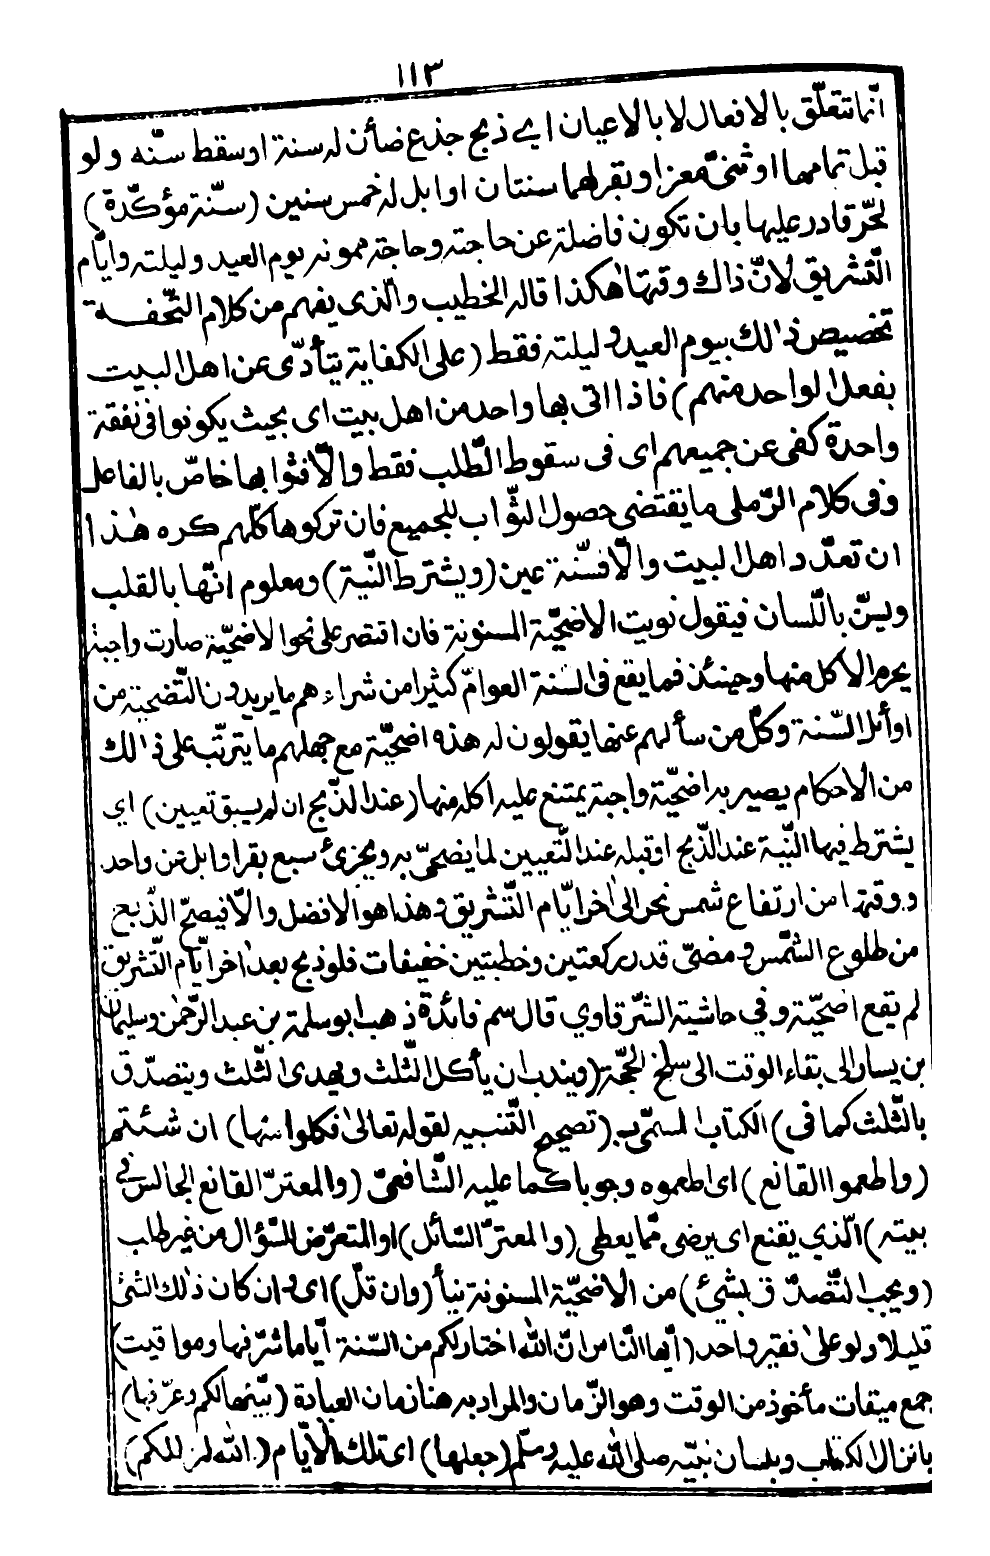 ١١٣
انّما تتعلّق بالافعال لا بالاعيان اي ذبح جذع ضأن له سنة او سقط سنّه ولو
قبل تمامها او ثنيّ معز او بقر لهما سنتان او ابل له خمس سنين (سنّة مؤكّدة)
لحرّ قادر عليها بان تكون فاضلة عن حاجته وحاجة ممونه يوم العيد وليلته وايّام
التّشريق لانّ ذالك وقتها هٰكذا قاله الخطيب والّذى يفهم من كلام التّحفـة
تخصيص ذالك بيوم العيد وليلته فقط (على الكفاية يتأدّى عن اهل البيت
بفعل الواحد منهم) فاذا اتى بها واحد من اهل بيت اى بحيث يكونوا فى نفقة
واحدة كفى عن جميعهم اى فى سقوط الطّلب فقط والّا فثوابها خاصّ بالفاعل
وفى كلام الرّملى ما يقتضى حصول الثّواب للجميع فان تركوها كلّهم كره هٰذا
ان تعدّد اهل البيت والّا فسنّة عين (ويشترط النّية) ومعلوم انّها بالقلب
ويسنّ باللّسان فيقول نويت الاضحيّة المسنونة فان اقتصر على نحو الاضحيّة صارت واجبة
يحرم الاكل منها وحينئذ فما يقع فى السنة العوامّ كثيرا من شراءهم ما يريدون التّضحية من
اوائل السّنة وكلّ من سألهم عنها يقولون له هذه اضحيّة مع جهلهم ما يترتّب على ذالك
من الاحكام يصير به اضحيّة واجبة يمتنع عليه اكله منها (عند الذّبح ان لم يسبق تعيين) اي
يشترط فيها النّيّة عند الذّبح او قبله عند التّعيين لما يضحّى به ويجزئ سبع بقر او ابل عن واحد
ووقتها من ارتفاع شمس نحر الىٰ اٰخر ايّام التّشريق وهذا هو الافضل والّا فيصحّ الذّبح
من طلوع الشّمس ومضىّ قدر ركعتين وخطبتين خفيفات فلو ذبح بعد اٰخر ايّام التّشريق
لم يقع اضحيّة وفي حاشية الشّرقاوي قال سم فائدة ذهب ابو سلمة بن عبد الرّحمٰن وسليمان
بن يسار الى بقاء الوقت الى سلخ الحجّة (ويندب ان يأكل الثّلث ويهدى الثّلث ويتصدّق
بالثّلث كما فى) الكتاب المسمّى ب(تصحيح التّنبيه لقوله تعالىٰ فكلوا منها) ان شئتم
(واطعموا القانع) اى اطعموه وجوبا كما عليه الشّافعىّ (والمعترّ القانع الجالس في
بيته) الّذي يقنع اى يرضى ممّا يعطى (والمعترّ السّائل) او المتعرّض للسّؤال من غير طلب
(ويجب التّصدّق بشئ) من الاضحيّة المسنونة نيأ (وان قلّ) اى وان كان ذٰلك الشئ
قليلا ولو علىٰ فقير واحد (ايّها النّاس انّ اللّٰه اختار لكم من السّنة ايّاما شرّفها ومواقيت)
جمع ميقات مأخوذ من الوقت وهو الزّمان والمراد به هنا زمان العبادة (بيّنها لكم وعرّفها)
بانزال الكتاب وبلسان نبيّه صلى اللّٰه عليه وسلّم (جعلها) اى تلك الايّام (اللّٰه لذلكم)